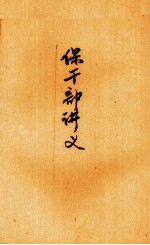 保干部讲义